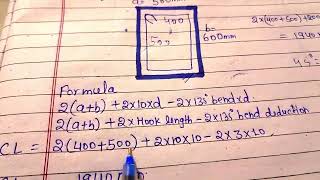 a= 500mm
400
500
b=
600mm
2x(400+500)+200
= 1940
45°=
Formula
2(a+b) + 2x10xd - 2x135° bendxd.
2(a+b) + 2x Hook length - 2x135° bend deduction
CL = 2(400+500) + 2x10x10 - 2x3x10.